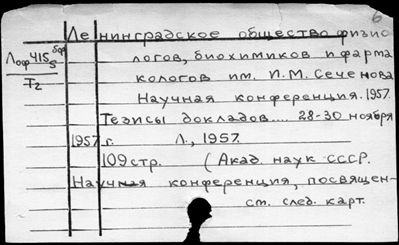 6
Ленинградское общество физио
логов, биохимиков и фарма
кологов им. И.М. Сеченова
Научная конференция. 1957.
Тезисы докладов.... 28-30 ноября
1957 г. Л., 1957.
109 стр. (Акад. наук СССР.
Научная конференция, посвящен-
см. след. карт.
Лоф 415 5 бф
I2